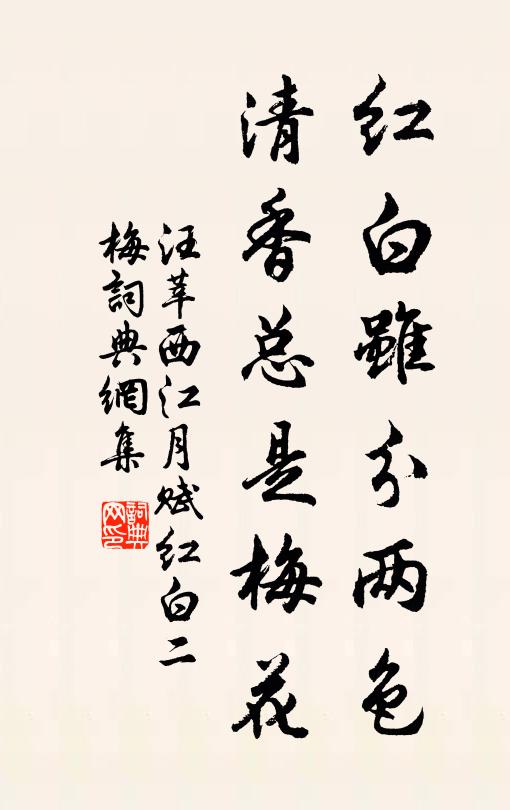 红白雖分两色
清香总是梅花
汪莘西江月赋红白二
梅詞典網集
詞典
网印